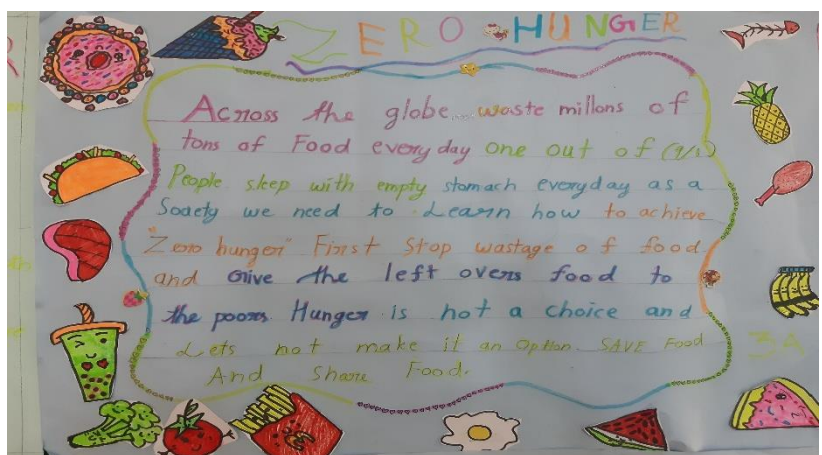 ZERO HUNGER
Across the globe... waste millons of
tons of Food everyday one out of (9/1)
People sleep with empty stomach everyday as a
Society we need to Learn how to achieve
"Zero hunger" First Stop wastage of food
and Give the left overs food to
the poors Hunger is not a choice and
Lets not make it an Option. SAVE Food
And Share Food.
3A